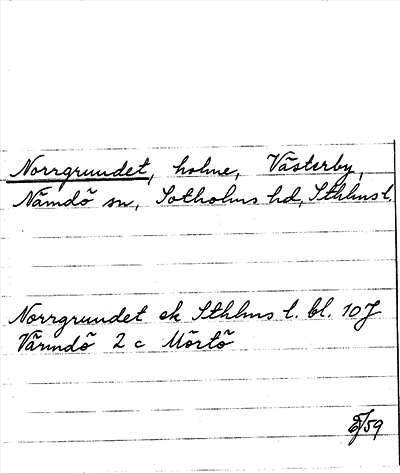 Norrgrundet, holme, Västerby,
Nämdö sn, Sotholms hd, Sthlms l.
Norrgrundet ek Sthlms l. bl. 10 J
Värmdö 2 c Mörtö
EJ 59